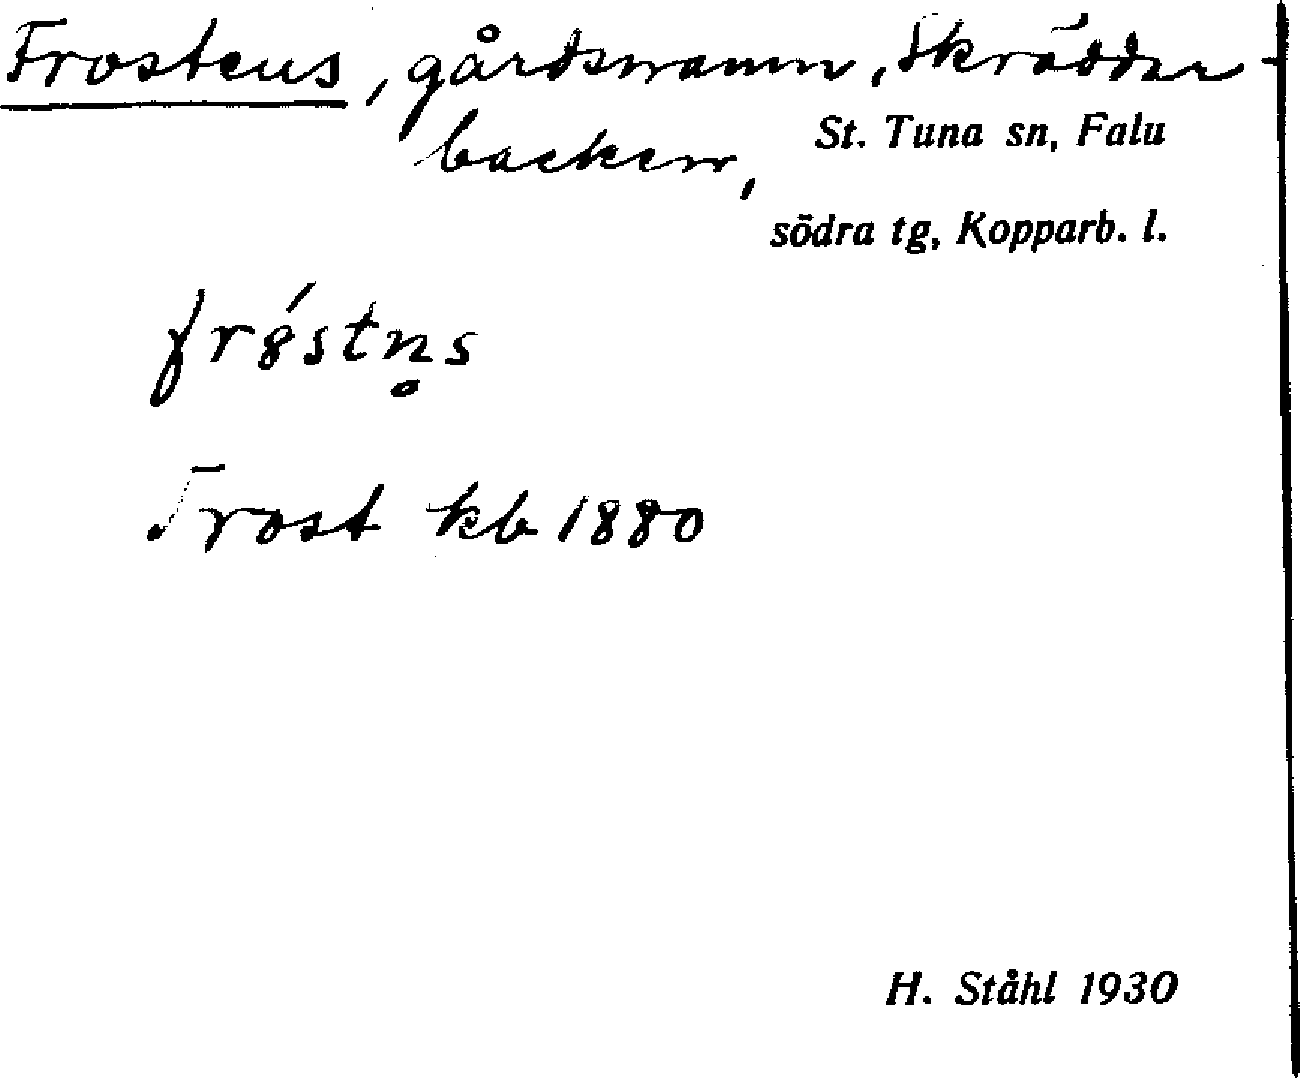 Frostens, gårdsnamn, Skräddar-
backen, St. Tuna sn, Falu
södra tg, Kopparb. l.
fr8́stn̥s
Frost kb 1880
H. Ståhl 1930